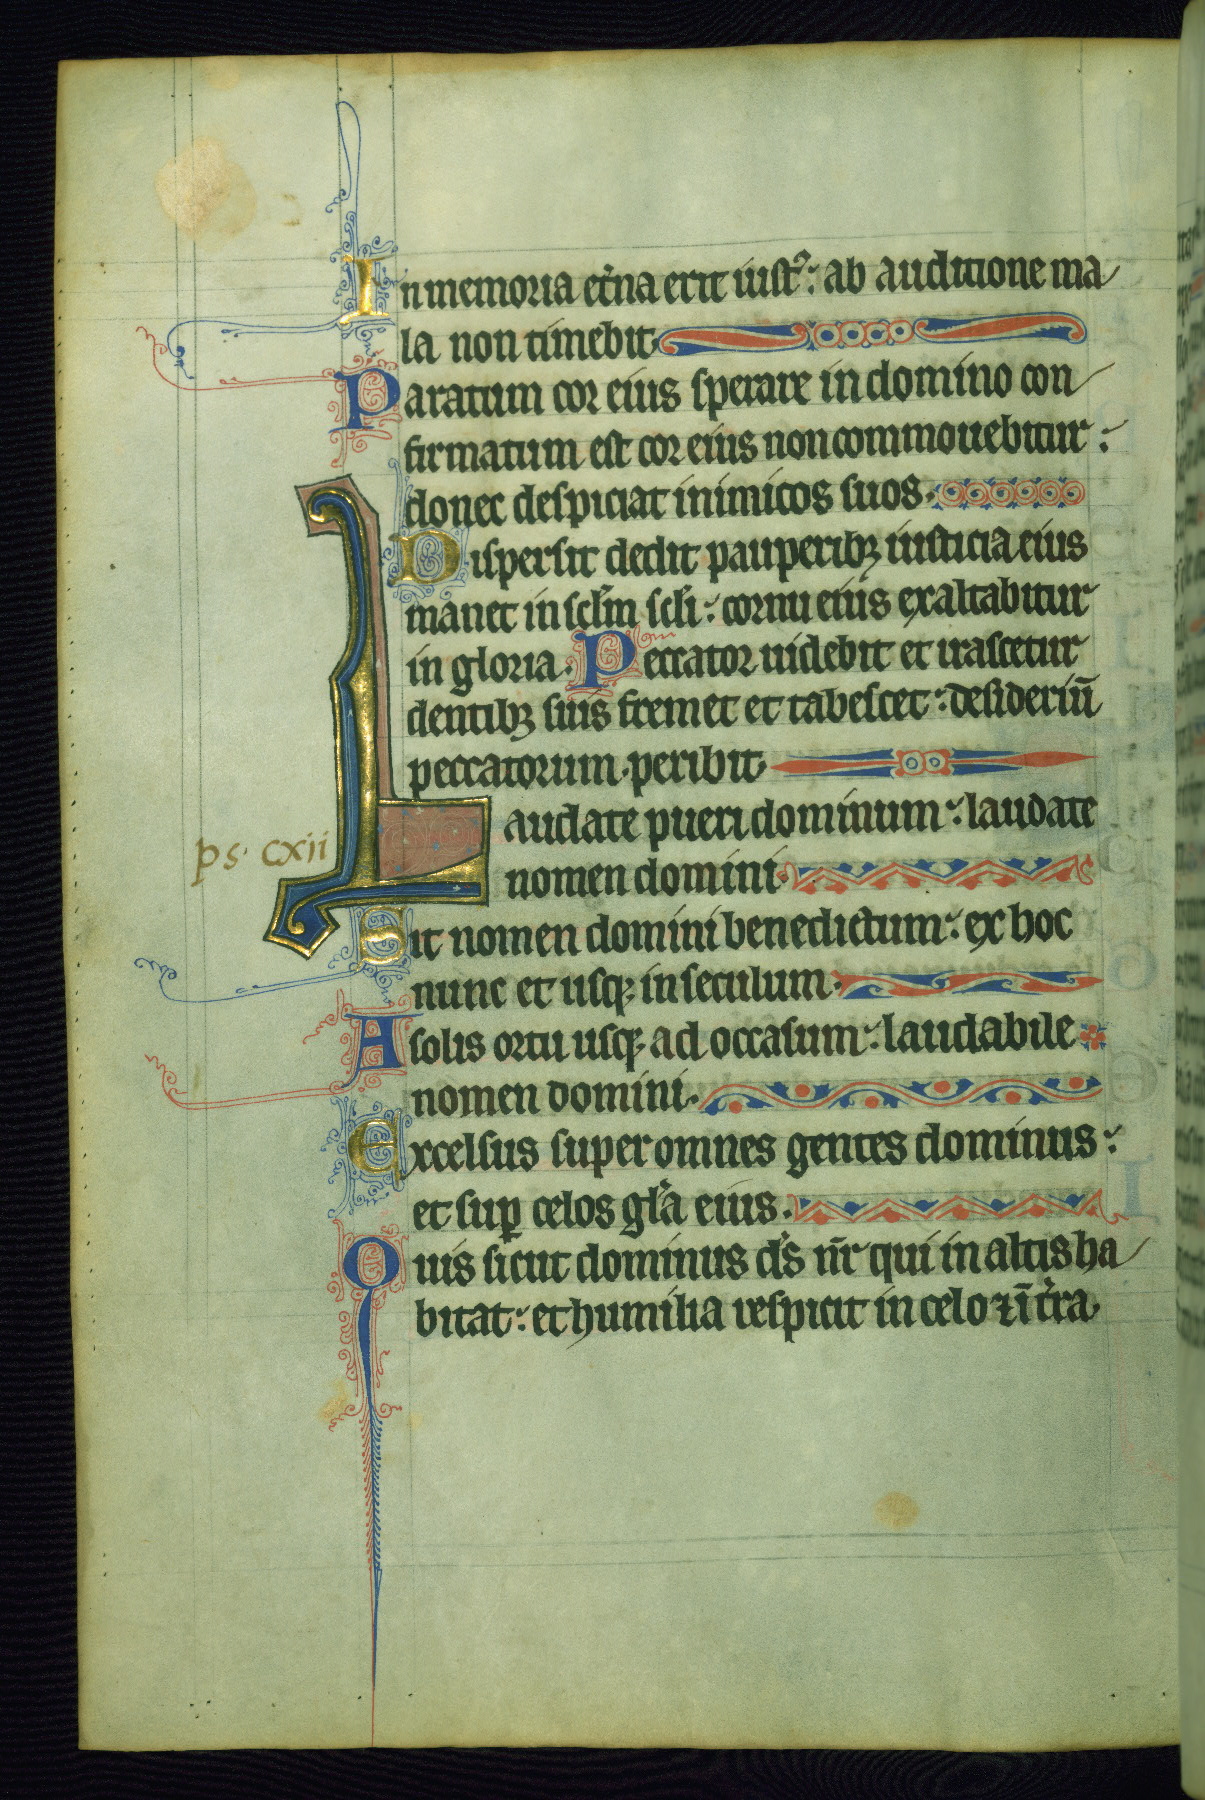 In memoria et͛na erit iustꝰ: ab auditione ma
la non timebit.
Paratum cor eius sperare in domino con
firmatum est cor eius non commouebitur:
donec despiciat inimicos suos.
Dispersit dedit pauperibꝫ iusticia eius
manet in scl̄m scl̄i: cornu eius exaltabitur
in gloria. Peccator uidebit et irascetur
dentibꝫ suis fremet et tabescet: desideriū
peccatorum peribit.
Laudate pueri dominum: laudate
ps. cxii
nomen domini.
Sit nomen domini benedictum: ex hoc
nunc et usqꝫ in seculum.
A solis ortu usqꝫ ad occasum: laudabile
nomen domini.
Excelsus super omnes gentes dominus:
et suꝑ celos gl̄a eius.
Quis sicut dominus d̄s nr̄ qui in altis ha
bitat: et humilia respicit in celo ⁊ ī t͛ra.